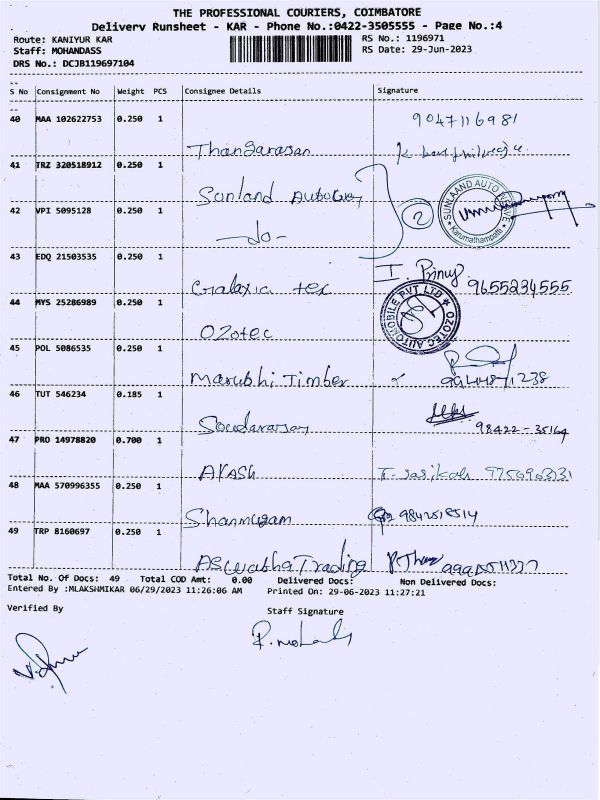 THE PROFESSIONAL COURIERS, COIMBATORE
Delivery Runsheet - KAR - Phone No.:0422-3505555 - Page No.:4
Route: KANIYUR KAR RS No.: 1196971
Staff: MOHANDASS RS Date: 29-Jun-2023
DRS No.: DCJB119697104
S No Consignment No Weight PCS Consignee Details Signature
40 MAA 102622753 0.250 1 9047116981
Thangarasan
41 TRZ 320518912 0.250 1
Sunland 2 SUNLAAND AUTO Karumathampatti
42 VPI 5095128 0.250 1
-do-
43 EDQ 21503535 0.250 1
Galaxia tex 9655234555
44 MYS 25286989 0.250 1 OZOTEC AUTOMOBILE PVT LTD
Ozotec
45 POL 5086535 0.250 1
Marubhi Timber
46 TUT 546234 0.185 1
98422-35164
47 PRO 14978820 0.700 1
AKASH
48 MAA 570996355 0.250 1
Shanmugam 9842518514
49 TRP 8160697 0.250 1
Aswabha Trading
Total No. Of Docs: 49 Total COD Amt: 0.00 Delivered Docs: Non Delivered Docs:
Entered By :MLAKSHMIKAR 06/29/2023 11:26:06 AM Printed On: 29-06-2023 11:27:21
Verified By Staff Signature